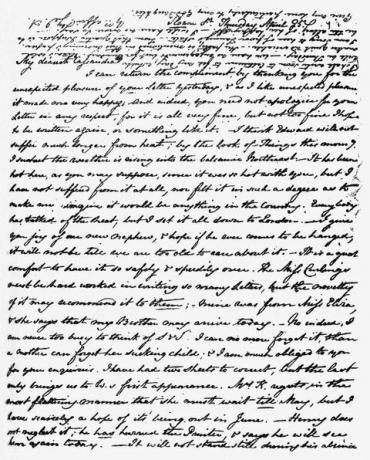 Sloane St Thursday April 25
My dearest Cassandra
I can return the compliment by thanking you for the
unexpected pleasure of your Letter yesterday, & as I like unexpected pleasure
it made me very happy; And indeed, you need not apologise for your
Letter in any respect, for it is all very fine, but not too fine I hope
to be written again, or something like it. I think Edward will not
suffer much longer from heat; by the look of Things this morng
I suspect the weather is rising into the balsamic Northeast. It has been
hot here, as you may suppose, since it was so hot with you, but I
have not suffered from it at all, nor felt it in such a degree as to
make me imagine it would be anything in the Country. Everybody
has talked of the heat, but I set it all down to London. — I give
you joy of our new nephew, & hope if he ever comes to be hanged,
it will not be till we are too old to care about it. — It is a great
comfort to have it so safely & speedily over. The Miss Curlings
must be hard worked in writing so many Letters, but the novelty
of it may recommend it to them; — mine was from Miss Eliza,
& she says that my Brother may arrive today. — No indeed, I
am never too busy to think of S & S. I can no more forget it, than
a mother can forget her sucking child; & I am much obliged to you
for your enquiries. I have had two sheets to correct, but the last
only brings us to W.s first appearance. Mrs K. regrets in the
most flattering manner that she must wait till May, but I
have scarcely a hope of its being out in June. — Henry does
not neglect it; he has hurried the Printer, & says he will see
him again today. — It will not stand still during his absence